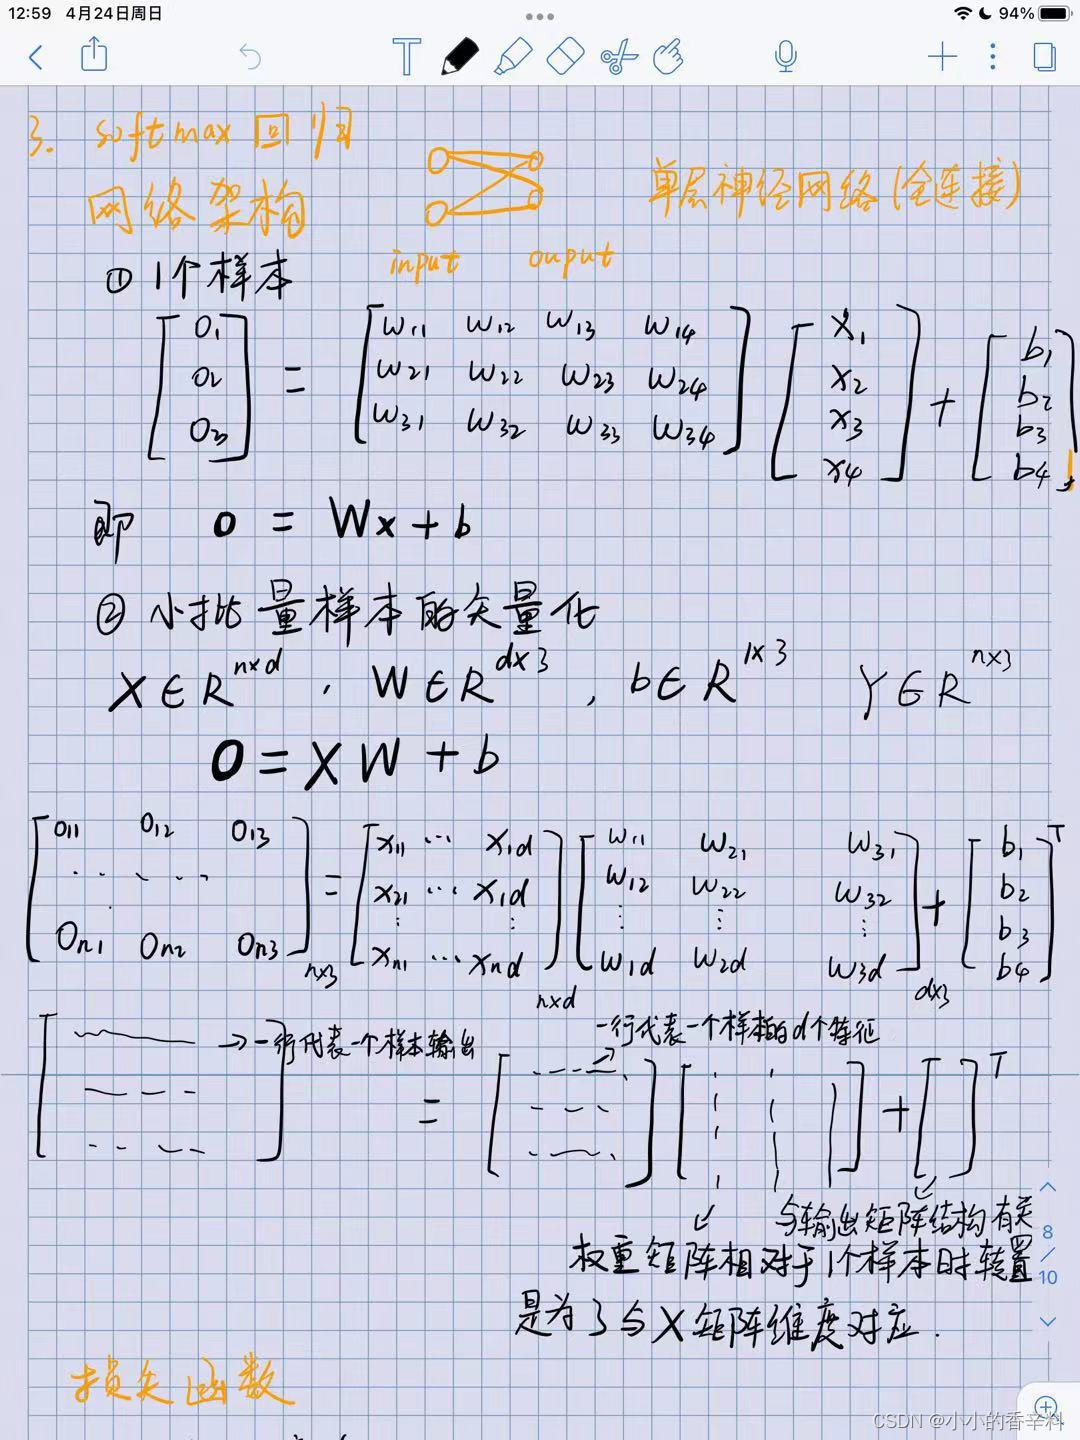 12:59 4月24日周日 94%
3. softmax 回归
网络架构
单层神经网络(全连接)
input ouput
① 1个样本
[o1 o2 o3] = [w11 w12 w13 w14
w21 w22 w23 w24
w31 w32 w33 w34] [x1 x2 x3 x4] + [b1 b2 b3 b4]
即 o = Wx + b
② 小批量样本的矢量化
X∈R^{n×d} , W∈R^{d×3} , b∈R^{1×3} Y∈R^{n×3}
O = XW + b
[o11 o12 o13
... 
on1 on2 on3]n×3 = [x11 ... x1d
x21 ... x1d
⋮ ⋮
xn1 ... xnd]n×d [w11 w21 w31
w12 w22 w32
⋮ ⋮ ⋮
w1d w2d w3d]d×3 + [b1 b2 b3 b4]^T
→一行代表一个样本输出
一行代表一个样本的d个特征
= + T
与输出矩阵结构有关
权重矩阵相对于1个样本时转置
是为了与X矩阵维度对应.
8
/
10
损失函数
CSDN @小小的香辛料